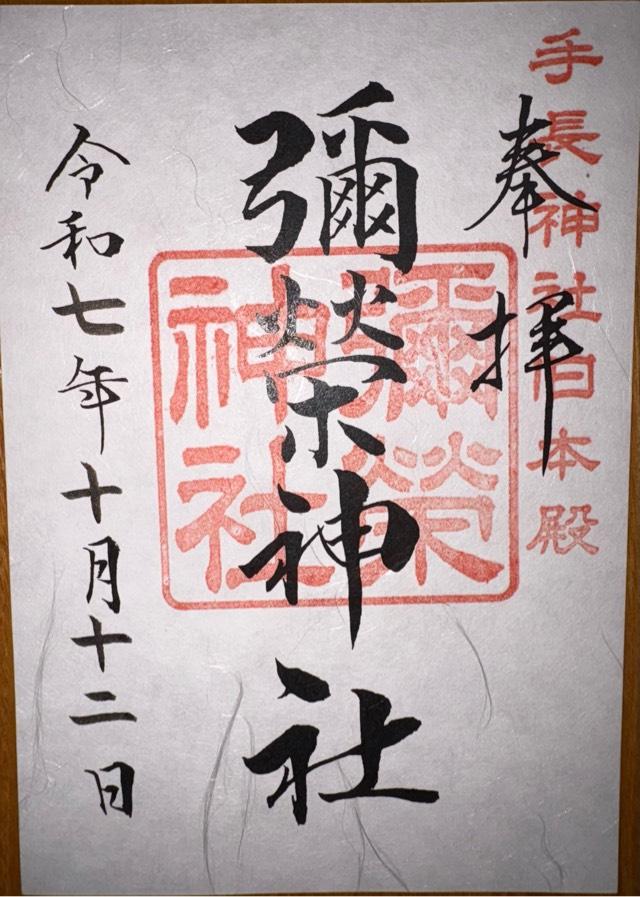 手長神社旧本殿
奉拝
彌榮神社
彌榮
神社
令和七年十月十二日